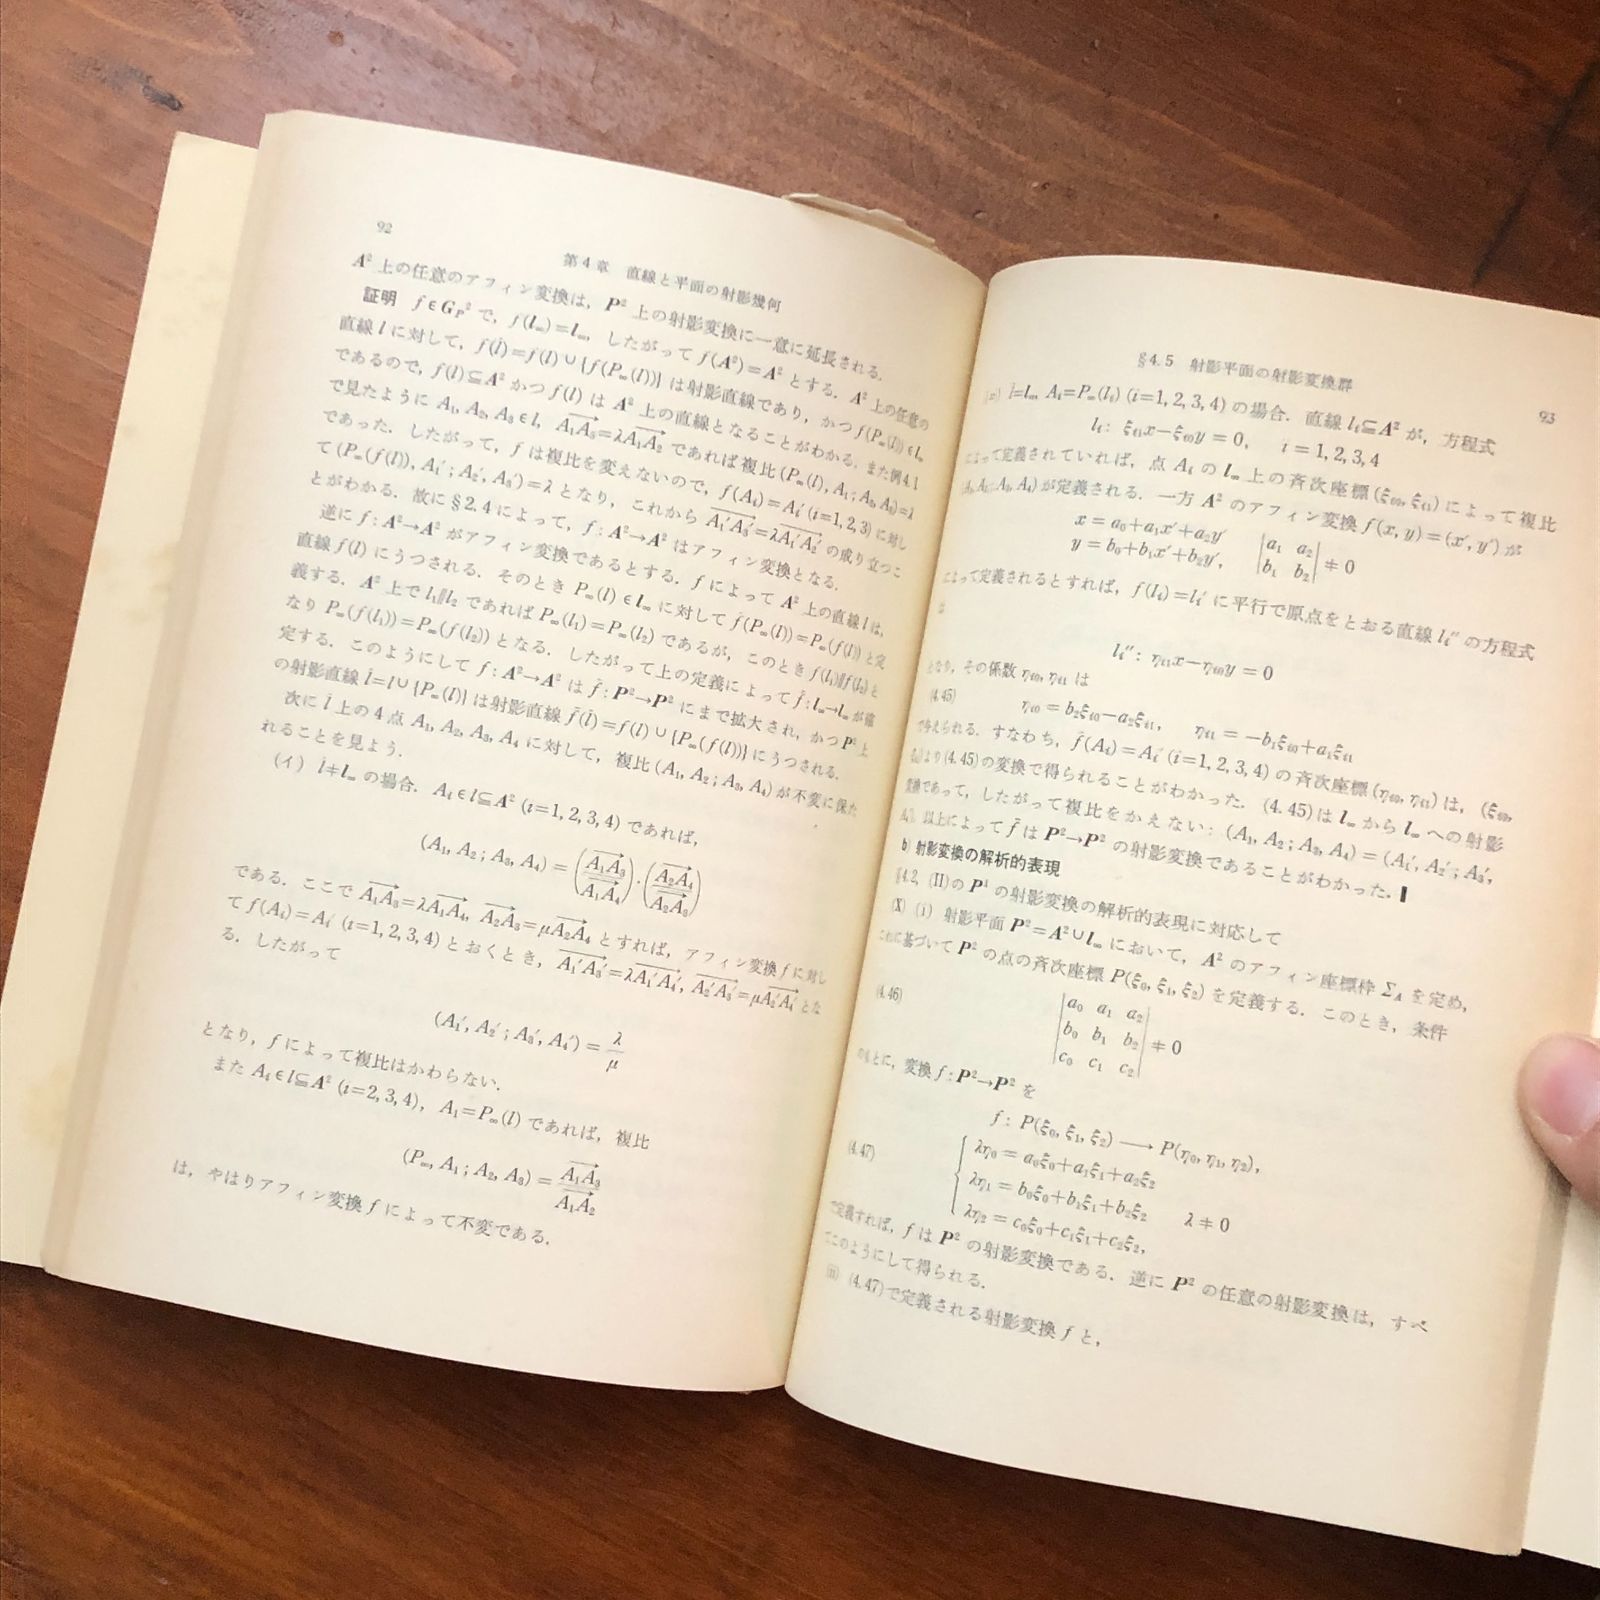 92
第4章 直線と平面の射影幾何
A² 上の任意のアフィン変換は, P² 上の射影変換に一意に延長される.
証明 f∈G_P² で, f(l_∞)=l_∞, したがって f(A²)=A² とする. A² 上の任意の
直線 l に対して, f(l̄)=f(l)∪{f(P_∞(l))} は射影直線であり, かつ f(P_∞(l))∈l_∞
であるので, f(l)⊆A² かつ f(l) は A² 上の直線となることがわかる. また例4.1
で見たように A₁, A₂, A₃∈l, A₁A₃=λA₁A₂ であれば複比 (P_∞(l), A₁; A₂, A₃)=λ
であった. したがって, f は複比を変えないので, f(A_i)=A_i′ (i=1,2,3) に対し
て (P_∞(f(l)), A₁′; A₂′, A₃′)=λ となり, これから A₁′A₃′=λA₁′A₂′ の成り立つこ
とがわかる. 故に §2.4 によって, f: A²→A² はアフィン変換となる.
逆に f: A²→A² がアフィン変換であるとする. f によって A² 上の直線 l は,
直線 f(l) にうつされる. そのとき P_∞(l)∈l_∞ に対して f̄(P_∞(l))=P_∞(f(l)) と定
義する. A² 上で l₁∥l₂ であれば P_∞(l₁)=P_∞(l₂) であるが, このとき f(l₁)∥f(l₂) と
なり P_∞(f(l₁))=P_∞(f(l₂)) となる. したがって上の定義によって f̄: l_∞→l_∞ が確
定する. このようにして f: A²→A² は f̄: P²→P² にまで拡大され, かつ P² 上
の射影直線 l̄=l∪{P_∞(l)} は射影直線 f̄(l̄)=f(l)∪{P_∞(f(l))} にうつされる.
次に l̄ 上の4点 A₁, A₂, A₃, A₄ に対して, 複比 (A₁, A₂; A₃, A₄) が不変に保た
れることを見よう.
(イ) l̄≠l_∞ の場合. A_i∈l⊆A² (i=1,2,3,4) であれば,
(A₁, A₂; A₃, A₄) = (A₁A₃/A₁A₄)·(A₂A₄/A₂A₃)
である. ここで A₁A₃=λA₁A₄, A₂A₃=μA₂A₄ とすれば, アフィン変換 f に対し
て f(A_i)=A_i′ (i=1,2,3,4) とおくとき, A₁′A₃′=λA₁′A₄′, A₂′A₃′=μA₂′A₄′ とな
る. したがって
(A₁′, A₂′; A₃′, A₄′) = λ/μ
となり, f によって複比はかわらない.
また A_i∈l⊆A² (i=2,3,4), A₁=P_∞(l) であれば, 複比
(P_∞, A₁; A₂, A₃) = A₁A₃/A₁A₂
は, やはりアフィン変換 f によって不変である.
§4.5 射影平面の射影変換群
93
l̄=l_∞, A_i=P_∞(l_i) (i=1,2,3,4) の場合. 直線 l_i⊆A² が, 方程式
l_i: ξ_i1x−ξ_i0y = 0, i = 1, 2, 3, 4
によって定義されていれば, 点 A_i の l_∞ 上の斉次座標 (ξ_i0, ξ_i1) によって複比
(A₁, A₂; A₃, A₄) が定義される. 一方 A² のアフィン変換 f(x, y)=(x′, y′) が
x = a₀+a₁x′+a₂y′
y = b₀+b₁x′+b₂y′, |a₁ a₂; b₁ b₂| ≠ 0
によって定義されるとすれば, f(l_i)=l_i′ に平行で原点をとおる直線 l_i″ の方程式
は
l_i″: η_i1x−η_i0y = 0
となり, その係数 η_i0, η_i1 は
(4.45) η_i0 = b₂ξ_i0−a₂ξ_i1, η_i1 = −b₁ξ_i0+a₁ξ_i1
で与えられる. すなわち, f̄(A_i)=A_i′ (i=1,2,3,4) の斉次座標 (η_i0, η_i1) は, (ξ_i0,
ξ_i1) より (4.45) の変換で得られることがわかった. (4.45) は l_∞ から l_∞ への射影
変換であって, したがって複比をかえない: (A₁, A₂; A₃, A₄) = (A₁′, A₂′; A₃′,
A₄′). 以上によって f̄ は P²→P² の射影変換であることがわかった. ▌
b) 射影変換の解析的表現
§4.2, (II) の P¹ の射影変換の解析的表現に対応して
(X) (i) 射影平面 P²=A²∪l_∞ において, A² のアフィン座標枠 Σ_A を定め,
これに基づいて P² の点の斉次座標 P(ξ₀, ξ₁, ξ₂) を定義する. このとき, 条件
(4.46) |a₀ a₁ a₂; b₀ b₁ b₂; c₀ c₁ c₂| ≠ 0
のもとに, 変換 f: P²→P² を
f: P(ξ₀, ξ₁, ξ₂) ⟶ P(η₀, η₁, η₂),
λη₀ = a₀ξ₀+a₁ξ₁+a₂ξ₂
(4.47) λη₁ = b₀ξ₀+b₁ξ₁+b₂ξ₂ λ ≠ 0
λη₂ = c₀ξ₀+c₁ξ₁+c₂ξ₂,
で定義すれば, f は P² の射影変換である. 逆に P² の任意の射影変換は, すべ
てこのようにして得られる.
(ii) (4.47) で定義される射影変換 f と,